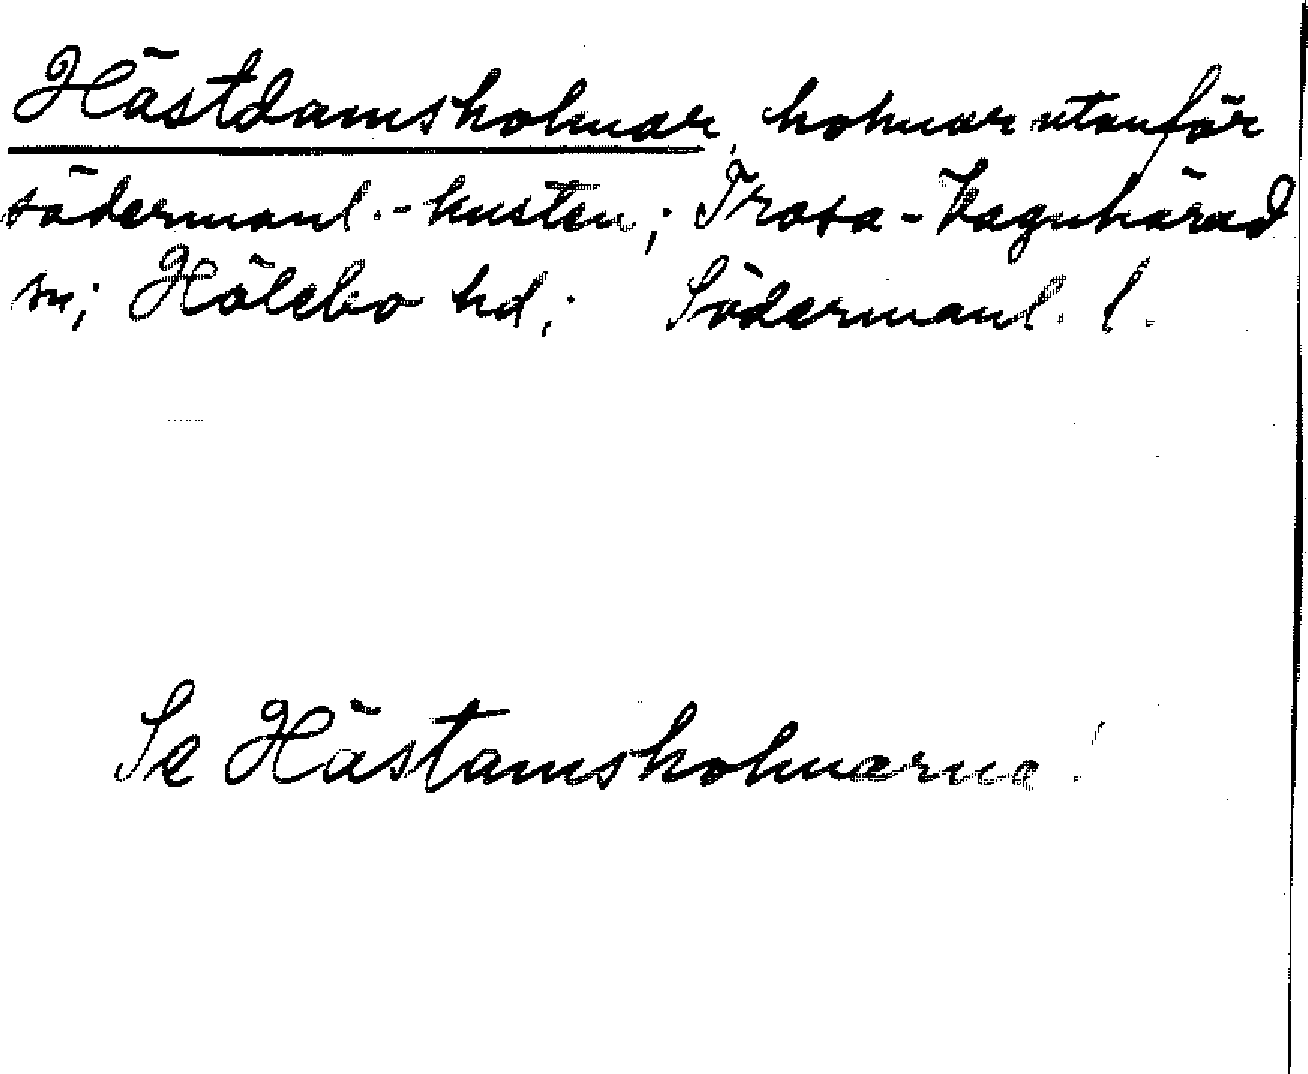 Hästdamsholmar, holmar utanför
södermanl.-kusten; Trosa-Vagnhärad
sn; Hölebo hd; Södermanl. l.
Se Hästamsholmarna!